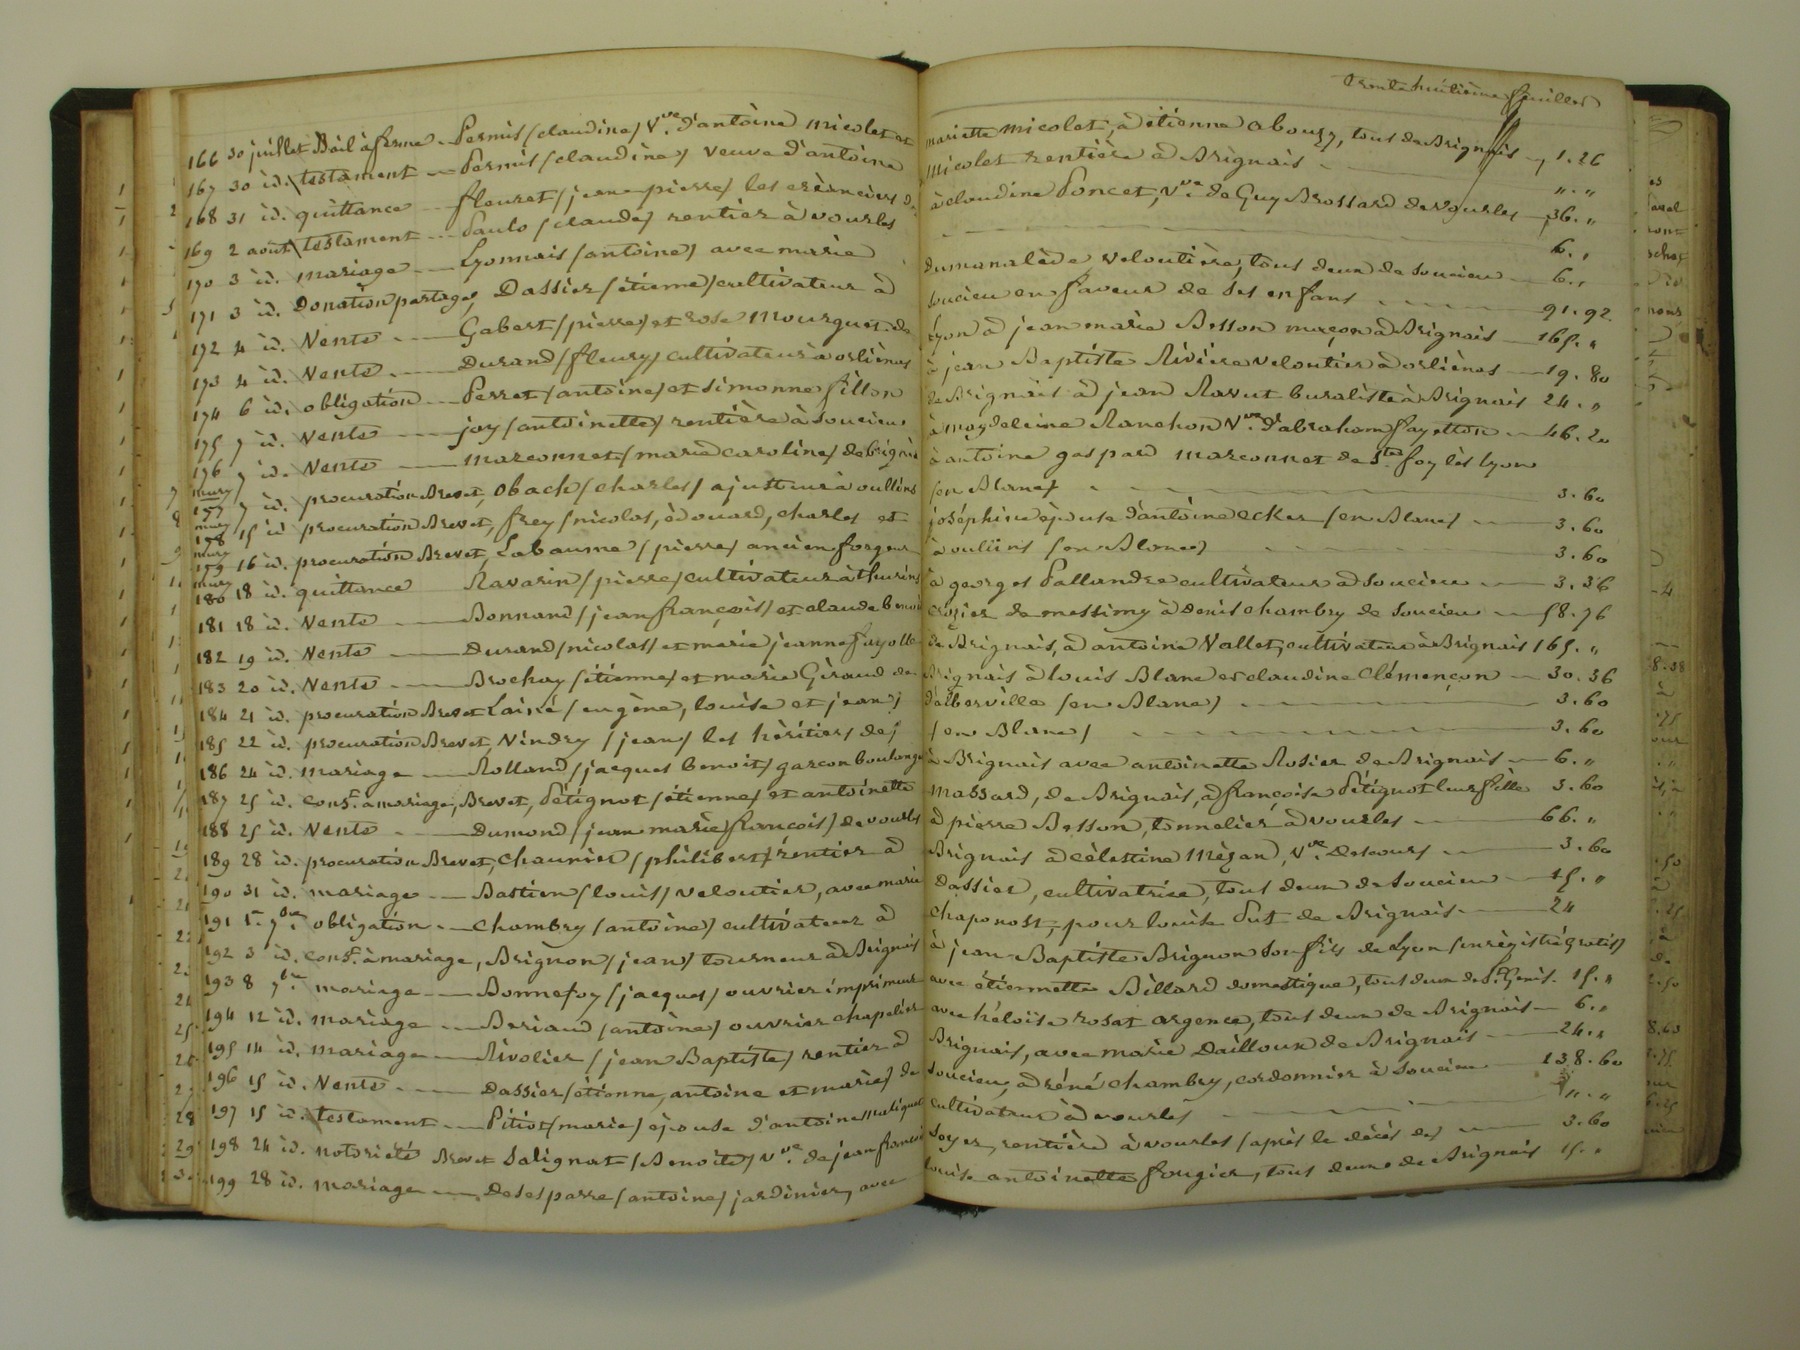 trente huitième feuillet
166 30 juillet Bail à ferme - Permis (claudine) Vve. d'antoine Micolet et mariette Micolet, à étienne abouzy, tous de Brignais 1.26
167 30 id. testament - Permis (claudine) veuve d'antoine Micolet rentière à Brignais " . "
168 31 id. quittance - fleuret (jean-pierre) les créanciers de à claudine Poncet, Vve. de Guy Brossard de vourles 36. "
169 2 août testament - Paulo (claude) rentier à vourles 6. "
170 3 id. mariage - Lyonnais (antoine) avec marie dumanalède veloutière, tous deux de Soucieu 6. "
171 3 id. Donation partage, Dassier (étienne) cultivateur à Soucieu en faveur de ses enfans 91.92
172 4 id. Vente - Gabert (pierre) et rose Mourguet de Lyon à jean marie Besson maçon à Brignais 165. "
173 4 id. Vente - Durand (fleury) cultivateur à orliénas à jean Baptiste Rivière veloutier à orliénas 19.80
174 6 id. obligation - Perret (antoine) et simonne fillon de Brignais à jean Ravut buraliste à Brignais 24. "
175 7 id. Vente - joy (antoinette) rentière à Soucieu à magdeleine Ranchon Vve. d'abraham fayetton 46.20
176 7 id. Vente - marconnet (marie caroline) de brignais à antoine gaspard marconnet de Ste. foy lès lyon
177 7 id. procuration Brevet, Obach (charles) ajusteur à oullins (en Blanc) 3.60
178 15 id procuration Brevet, frey (nicolas, édouard, charles et joséphine épouse d'antoine ecker (en Blanc) 3.60
179 16 id. procuration Brevet, Labaume (pierre) ancien forgeur à oullins (en Blanc) 3.60
180 18 id. quittance Ravarin (pierre) cultivateur à thurins à georges Pallandre cultivateur à Soucieu 3.36
181 18 id. Vente - Bonnand (jean françois) et claude benoit Crozier de messimy à Denis chambry de Soucieu 58.76
182 19 id. Vente - Durand (nicolas) et marie jeanne fayolle de Brignais, à antoine Vallet, cultivateur à Brignais 165. "
183 20 id. Vente - Brochay (étienne) et marie Giraud de Brignais à louis Blanc et claudine Clémençon 30.36
184 21 id. procuration Brevet Lainé (eugène, louise et jean) d'alberville (en Blanc) 3.60
185 22 id. procuration Brevet, Vindry (jean) les héritiers de) (en Blanc) 3.60
186 24 id. mariage - Rolland (jacques benoit) garçon boulanger à Brignais avec antoinette Rosier de Brignais 6. "
187 25 id. const. à mariage, Brevet, Pétignot (étienne) et antoinette Massard, de Brignais, à françoise Pétignot leur fille 3.60
188 25 id. Vente - Dumond (jean marie françois) de vourles à pierre Besson, tonnelier à vourles 66. "
189 28 id. procuration Brevet, Chaunier (philibert) rentier à Brignais à Célestine Mégard, Vve. Descours 3.60
190 31 id. mariage - Bastien (louis) veloutier, avec marie Dassier, cultivatrice, tous deux de Soucieu 15. "
191 1er. 7bre. obligation - chambry (antoine) cultivateur à chaponost, pour louise Put de Brignais 24
192 3 id. const. à mariage, Brignon (jean) tourneur à Brignais à jean-Baptiste Brignon son fils de Lyon (enrégistré gratis)
193 8 7bre mariage - Bonnefoy (jacques) ouvrier imprimeur avec étiennette Billard domestique, tous deux de St. Genis. 15. "
194 12 id. mariage - Beriaud (antoine) ouvrier chapelier avec héloise rosat argence, tous deux de Brignais 6. "
195 14 id. mariage - Rivolier (jean Baptiste) rentier à Brignais, avec marie Dailloux de Brignais 24. "
196 15 id. Vente - Dassier (étienne, antoine et marie) de Soucieu, à réné chambry, cordonnier à Soucieu 138.60
197 15 id. testament - Pitiot (marie) épouse d'antoine maliquet cultivateur à vourles " . "
198 24 id. notoriété Brevet Salignat (Benoite) Vve. de jean françois Soyer, rentière à vourles (après le décès de) 3.60
199 28 id. mariage - Desesparre (antoine) jardinier, avec louise antoinette fougier, tous deux de Brignais 15. "